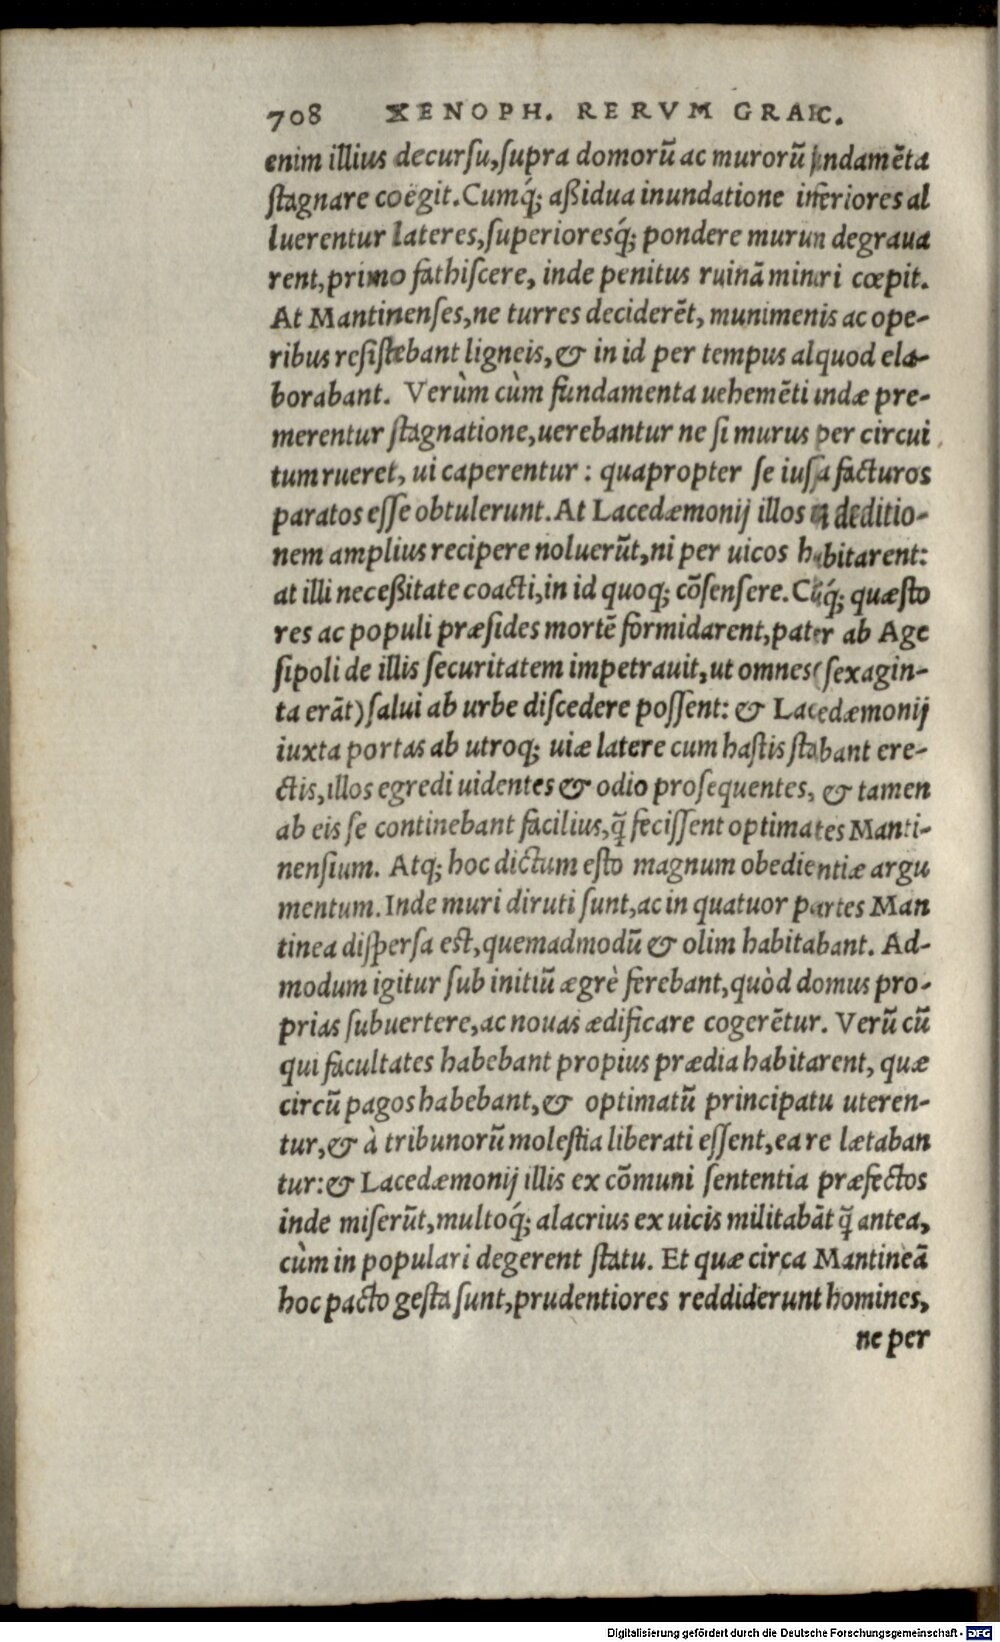 708 XENOPH. RERVM GRAEC.
enim illius decursu, supra domorũ ac murorũ fundamẽta
stagnare coëgit. Cumq́; aßidua inundatione inferiores al
luerentur lateres, superioresq́; pondere murum degraua
rent, primo fathiscere, inde penitus ruinã minari cœpit.
At Mantinenses, ne turres deciderẽt, munimenis ac ope-
ribus resistebant ligneis, & in id per tempus aliquod ela-
borabant. Verùm cùm fundamenta uehemẽti undæ pre-
merentur stagnatione, uerebantur ne si murus per circui
tum rueret, ui caperentur: quapropter se iussa facturos
paratos esse obtulerunt. At Lacedæmonij illos deditio-
nem amplius recipere noluerũt, ni per uicos habitarent:
at illi neceßitate coacti, in id quoq; cõsensere. Cũq́; quæsto
res ac populi præsides mortẽ formidarent, pater ab Age
sipoli de illis securitatem impetrauit, ut omnes (sexagin-
ta erãt) salui ab urbe discedere possent: & Lacedæmonij
iuxta portas ab utroq; uiæ latere cum hastis stabant ere-
ctis, illos egredi uidentes & odio prosequentes, & tamen
ab eis se continebant facilius, q̃ fecissent optimates Manti-
nensium. Atq; hoc dictum esto magnum obedientiæ argu
mentum. Inde muri diruti sunt, ac in quatuor partes Man
tinea dispersa est, quemadmodũ & olim habitabant. Ad-
modum igitur sub initiũ ægrè ferebant, quòd domus pro-
prias subuertere, ac nouas ædificare cogerẽtur. Verũ cũ
qui facultates habebant propius prædia habitarent, quæ
circũ pagos habebant, & optimatũ principatu uteren-
tur, & à tribunorũ molestia liberati essent, ea re lætaban
tur: & Lacedæmonij illis ex cõmuni sententia præfectos
inde miserũt, multoq́; alacrius ex uicis militabãt q̃ antea,
cùm in populari degerent statu. Et quæ circa Mantineã
hoc pacto gesta sunt, prudentiores reddiderunt homines,
ne per
Digitalisierung gefördert durch die Deutsche Forschungsgemeinschaft - DFG